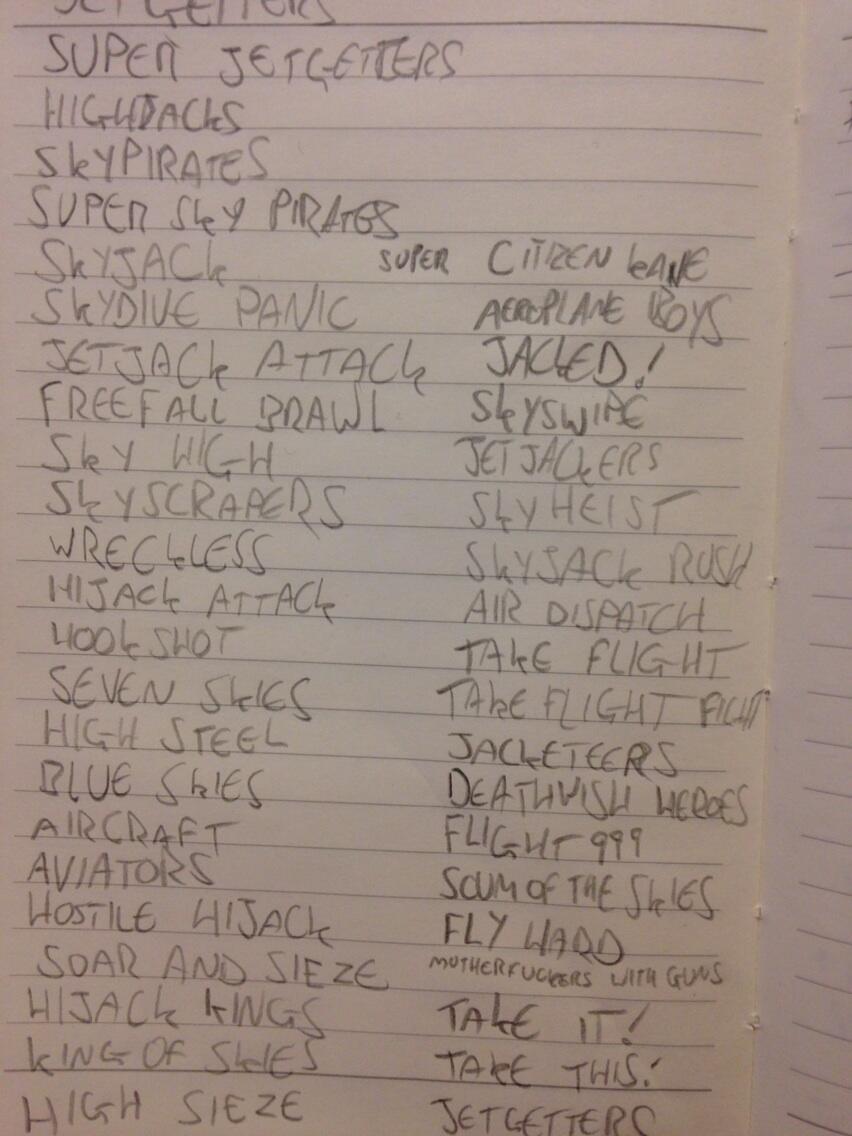 JETGETTERS
SUPER JETGETTERS
HIGHJACKS
SKYPIRATES
SUPER SKY PIRATES
SKYJACK
SKYDIVE PANIC
JETJACK ATTACK
FREEFALL BRAWL
SKY HIGH
SKYSCRAPERS
WRECKLESS
HIJACK ATTACK
HOOKSHOT
SEVEN SKIES
HIGH STEEL
BLUE SKIES
AIRCRAFT
AVIATORS
HOSTILE HIJACK
SOAR AND SIEZE
HIJACK KINGS
KING OF SKIES
HIGH SIEZE
SUPER CITIZEN KANE
AEROPLANE BOYS
JACKED!
SKYSWIPE
JETJACKERS
SKYHEIST
SKYJACK RUSH
AIR DISPATCH
TAKE FLIGHT
TAKE FLIGHT FIGHT
JACKETEERS
DEATHWISH HEROES
FLIGHT 999
SCUM OF THE SKIES
FLY HARD
MOTHERFUCKERS WITH GUNS
TAKE IT!
TAKE THIS!
JETGETTERS